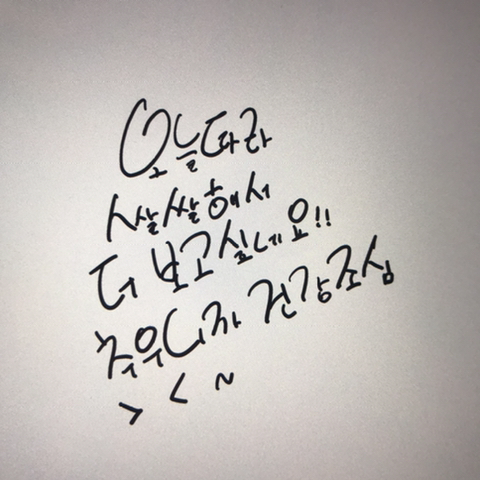 오늘따라
쌀쌀해서
더 보고싶네요!!
추우니까 건강조심
> < ~